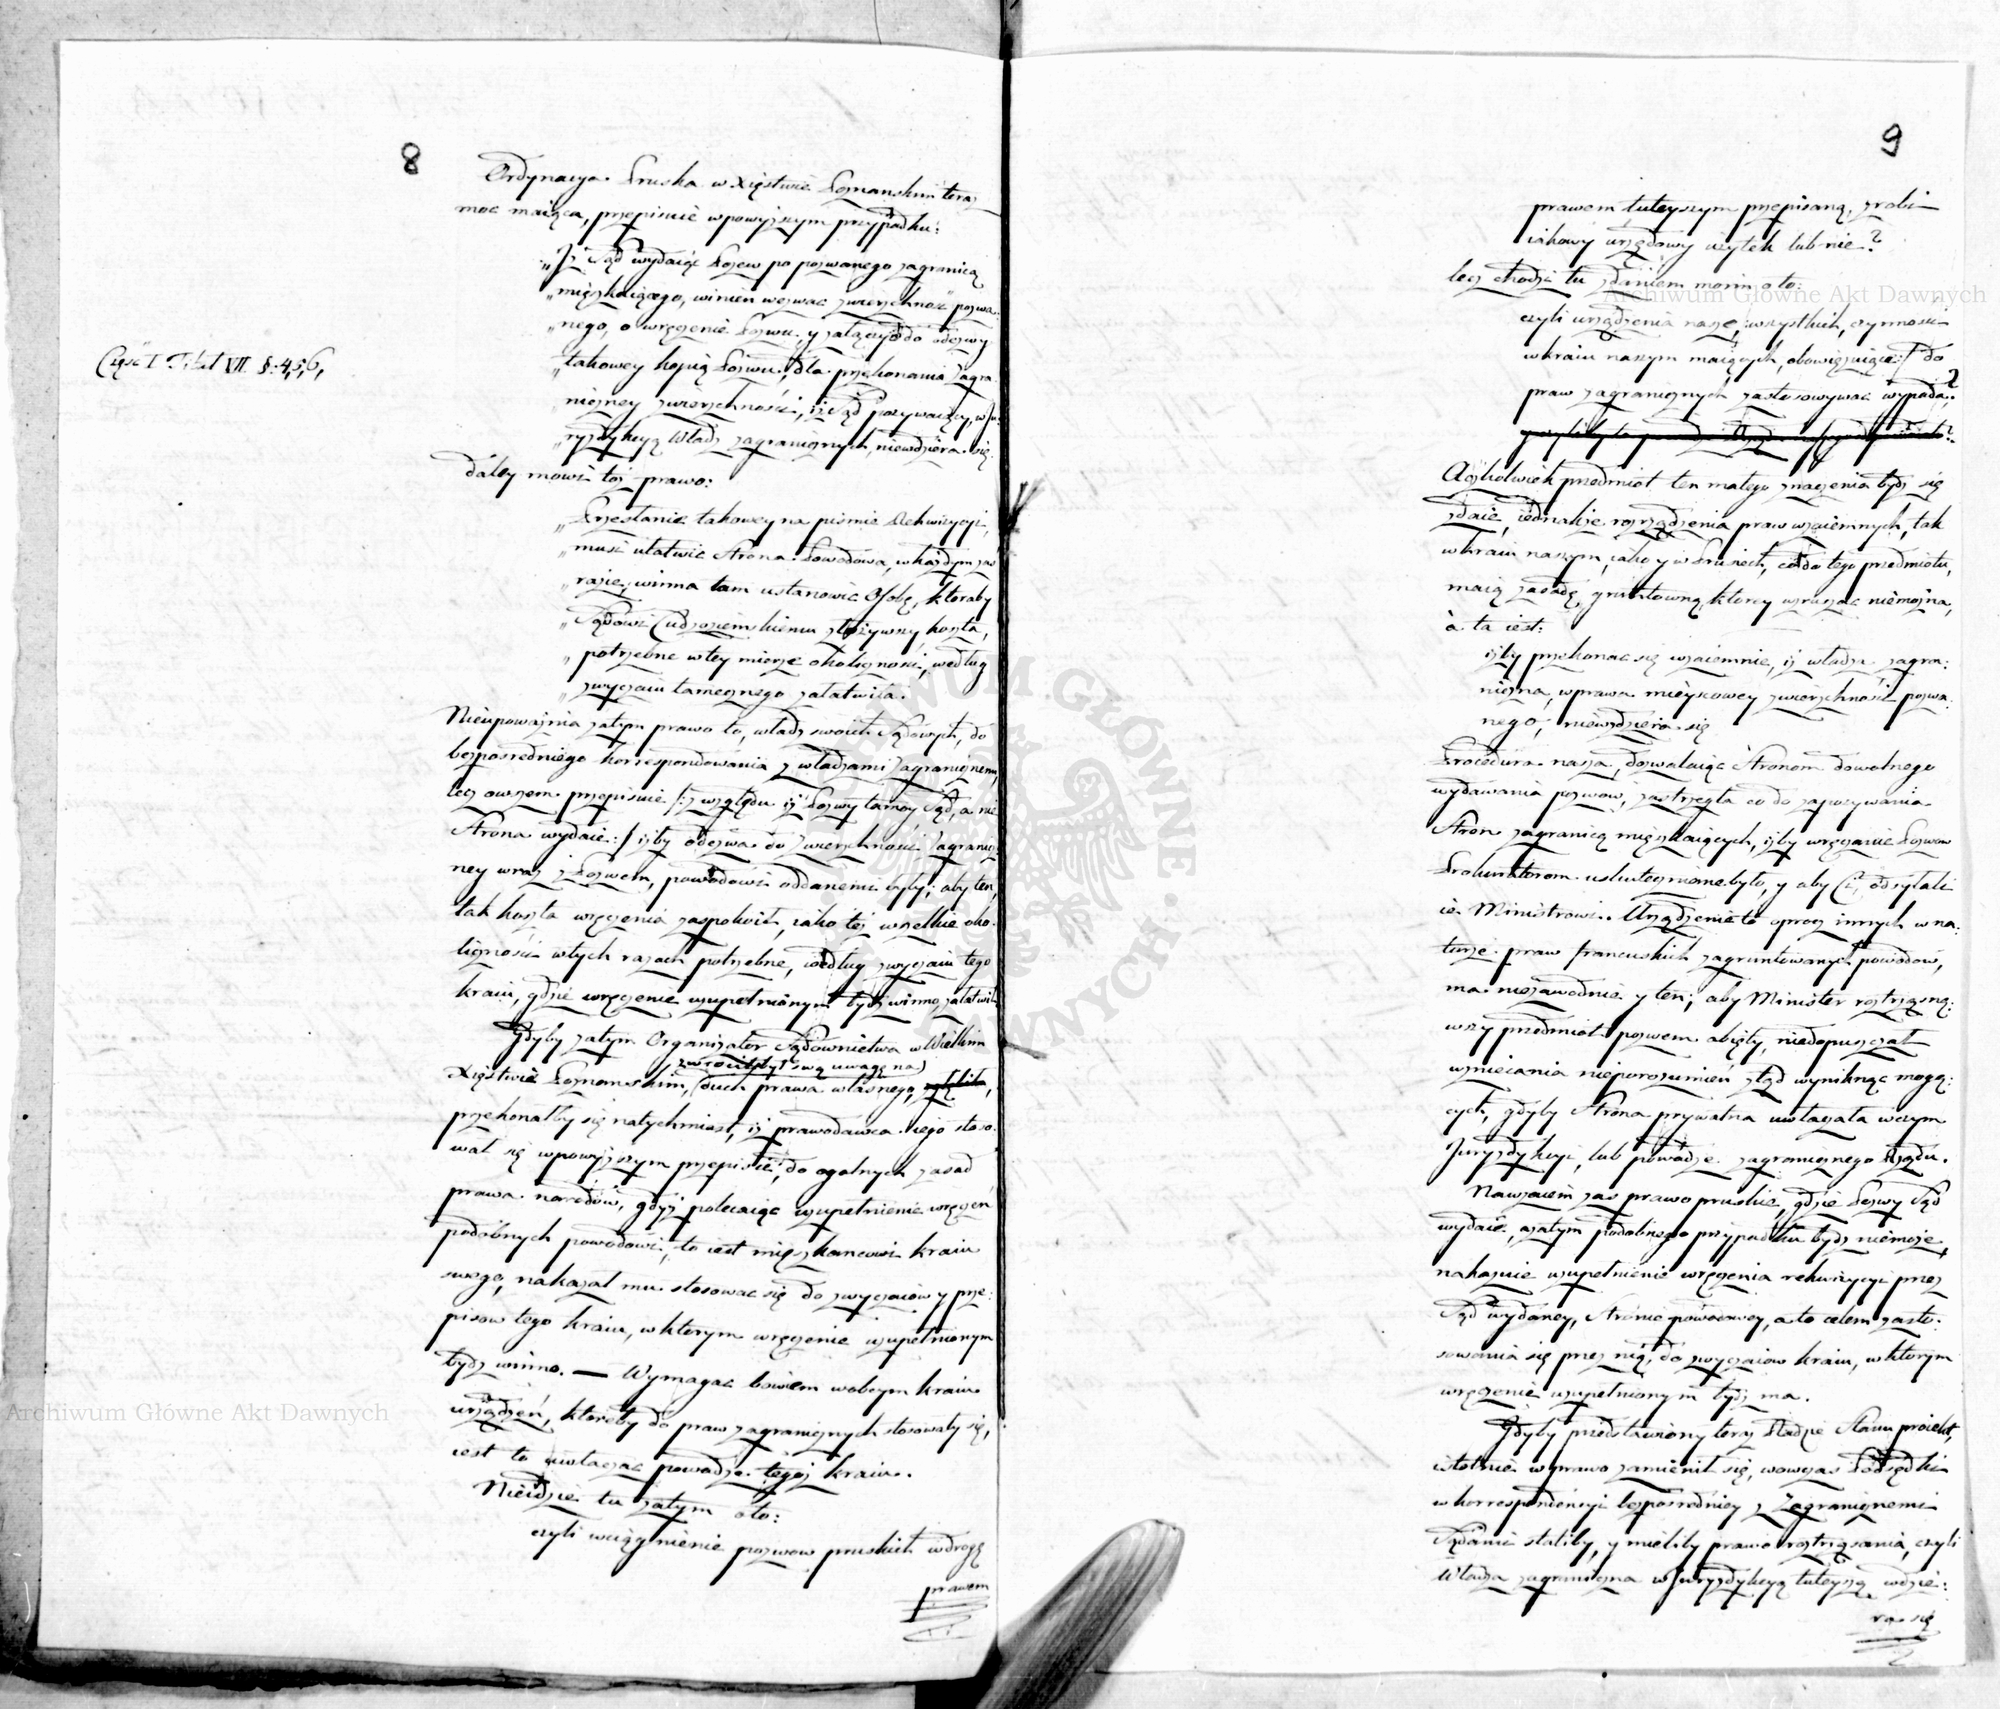 8
Ordynacya Pruska w Xięstwie Poznanskim teraz
moc maiąca, przepisuie w powyższym przypadku:
„Iż Sąd wydaiąc Pozew po pozwanego zagranicą
„mięszkaiącego, winien wezwać zwierzchność pozwa-
„nego, o wręczenie Pozwu, y załączyć do odezwy
Część I Tytuł VII. §. 4, 5, 6,
„takowey kopią Pozwu, dla przekonania Zagra-
„niczney zwierzchności, iż Sąd pozywaiący, w Ju-
„ryzdykcyą Władz zagranicznych, niewdziera się.
daley mowi toż prawo:
„Przesłanie takowey na pismie Rekwizycyi,
„musi ułatwić Strona Powodowa, w każdym zaś
„razie, winna tam ustanowić Osobę, ktoraby
„Sądowi Cudzoziemskiemu złożywszy koszta,
„potrzebne w tey mierze okoliczności, według
„zwyczaiu tamecznego załatwiła.
Nieupoważnia zatym prawo to, władz swoich Sądowych, do
bezposredniego korrespondowania z władzami zagranicznemi,
lecz owszem przepisuie /: z względu iż Pozwy tamoy Sąd, a nie
Strona wydaie :/ iżby odezwa do Zwierzchności Zagranicz-
ney wraz z Pozwem, powodowi oddanemi były; aby ten,
tak koszta wręczenia zaspokoił, iako też wszelkie oko-
liczności w tych razach potrzebne, według zwyczaiu tego
kraiu, gdzie wręczenie uzupełnionym bydź winno, załatwił.
Gdyby zatym Organizator Sądownictwa w Wielkim
zwrociłbył swą uwagę na
Xięstwie Poznanskim, duch prawa własnego,
przekonałby się natychmiast, iż prawodawca iego stoso-
wał się w powyższym przepisie, do ogolnych zasad
prawa narodów, gdyż polecaiąc uzupełnienie wręczeń
podobnych powodowi, to iest mięszkancowi kraiu
swego, nakazał mu stosować się do zwyczaiów y prze-
pisow tego kraiu, w ktorym wręczenie uzupełnionym
bydź winno. — Wymagać bowiem w obcym kraiu
urządzeń, ktoreby do praw zagranicznych stosowały się,
iest to uwłaczać powadze tegoż kraiu.
Nieidzie tu zatym oto:
czyli wciągnienie pozwow pruskich w drogę
prawem
9
prawem tuteyszym przepisaną, zrobi
iakowy urzędowy użytek lub nie?
lecz chodzi tu zdaniem moim o to:
czyli urządzenia nasze, wszystkich, czynności
w kraiu naszym maiących, obowięzuiące, do
praw zagranicznych zastosowywać wypada?
Aczkolwiek przedmiot ten małego znaczenia bydź się
zdaie, iednakże rozrządzenia praw wzaiemnych, tak
w kraiu naszym, iako y w Prusiech, co do tego przedmiotu,
maią zasadę, gruntowną, ktorey wzruszać niemożna,
à ta iest:
iżby przekonać się wzaiemnie, iż władza zagra-
niczna, w prawa mieyscowey zwierzchności pozwa-
nego, niewdziera się
Procedura nasza, dozwalaiąc Stronom dowolnego
wydawania pozwów, zastrzegła co do zapozywania
Stron zagranicą mięszkaiących, iżby wręczanie Pozwow
Prokuratorom uskutecznione było, y aby Ci, odsyłali
ie Ministrowi. Urządzenie to oprocz innych w na-
turze praw francuskich zagruntowanych powodów,
ma niezawodnie y ten; aby Minister roztrząsną-
wszy przedmiot pozwem obięty, niedopuszczał
wzniecania nieporozumień ztąd wyniknąć mogą-
cych, gdyby Strona prywatna uwłaczała w czym
Juryzdykcyi, lub powadze zagranicznego Rządu.
Nawzaiem zaś prawo pruskie, gdzie Pozwy Sąd
wydaie, a zatym podobnego przypadku bydź niemoże,
nakazuie uzupełnienie wręczenia rekwizycyi przez
Sąd wydaney, Stronie powodowey, a to celem zasto-
sowania się przez nią, do zwyczaiow kraiu, w ktorym
wręczenie uzupełnionym bydź ma.
Gdyby przedstawiony teraz Radzie Stanu proiekt,
istotnie w prawo zamienił się, wowczas Podsędki
w korrespondencyi bezposredniey z Zagranicznemi
Sądami staliby, y mieliby prawo roztrząsania, czyli
Władza zagraniczna w Juryzdykcyą tuteyszą wdzie-
ra się
Archiwum Główne Akt Dawnych
Archiwum Główne Akt Dawnych
ARCHIWUM GŁÓWNE AKT DAWNYCH